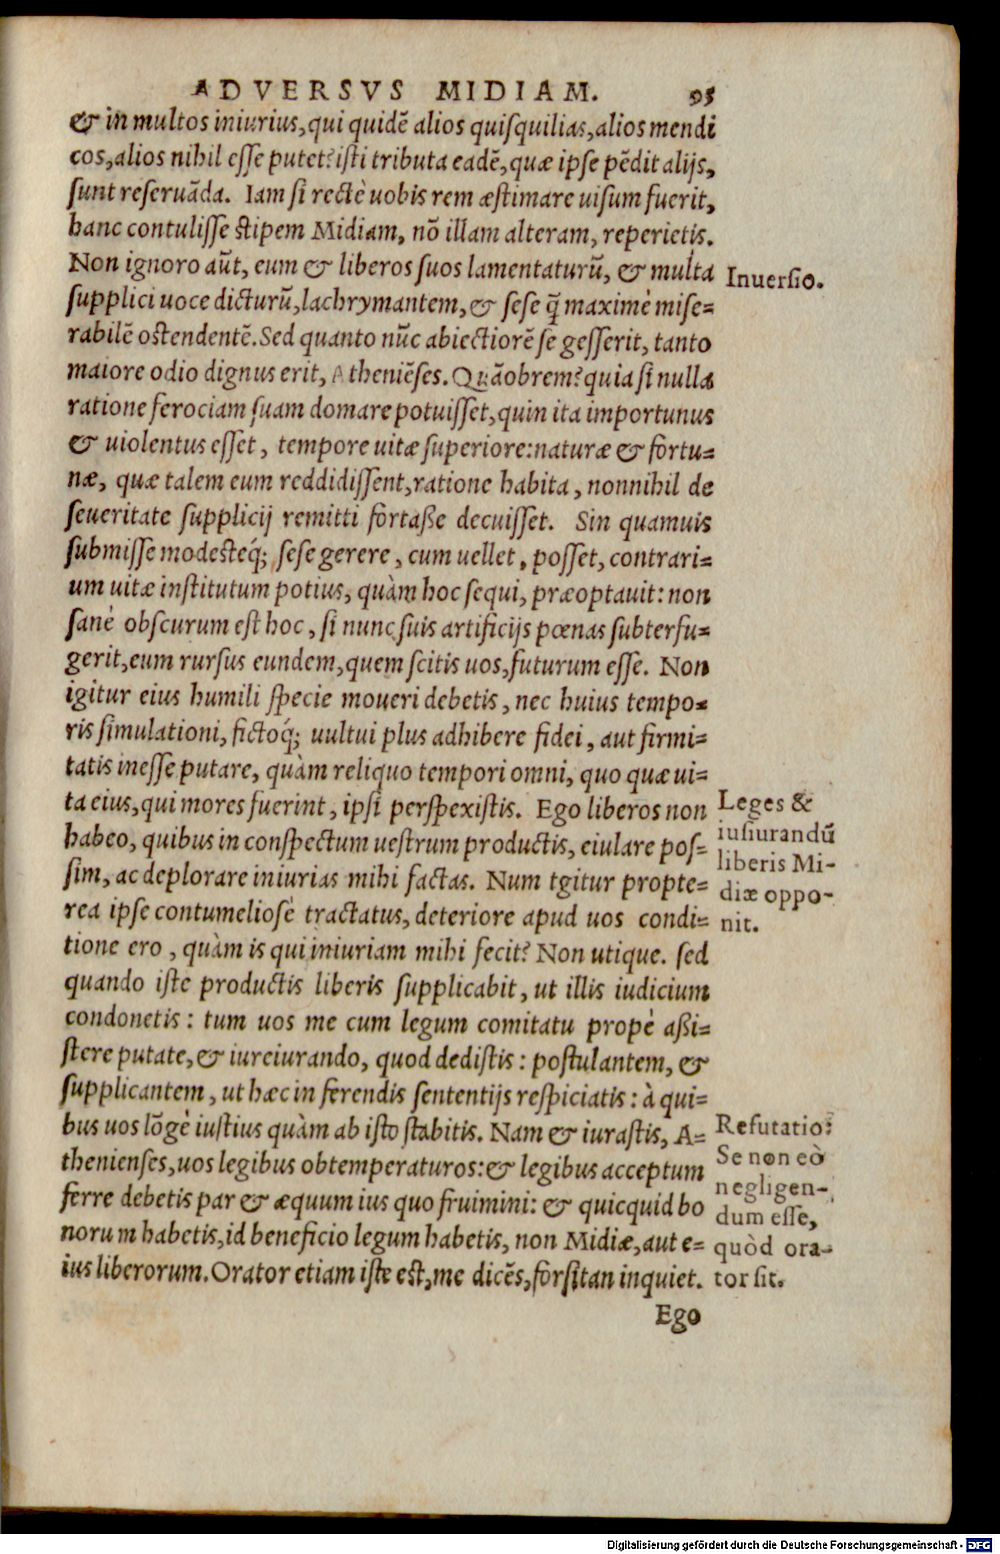 ADVERSVS MIDIAM. 95
& in multos iniurius, qui quidē alios quisquilias, alios mendi
cos, alios nihil esse putet? isti tributa eadē, quæ ipse pēdit alijs,
sunt reseruāda. Iam si rectè uobis rem æstimare uisum fuerit,
hanc contulisse stipem Midiam, nō illam alteram, reperietis.
Non ignoro aūt, eum & liberos suos lamentaturū, & multa
supplici uoce dicturū, lachrymantem, & sese q̄ maximè mise=
rabilē ostendentē. Sed quanto nūc abiectiorē se gesserit, tanto
maiore odio dignus erit, Atheniēses. Quāobrem? quia si nulla
ratione ferociam suam domare potuisset, quin ita importunus
& uiolentus esset, tempore uitæ superiore: naturæ & fortu=
næ, quæ talem eum reddidissent, ratione habita, nonnihil de
seueritate supplicij remitti fortaße decuisset. Sin quamuis
submisse modesteq́; sese gerere, cum uellet, posset, contrari=
um uitæ institutum potius, quàm hoc sequi, præoptauit: non
sanè obscurum est hoc, si nunc suis artificijs pœnas subterfu=
gerit, eum rursus eundem, quem scitis uos, futurum esse. Non
igitur eius humili specie moueri debetis, nec huius tempo=
ris simulationi, fictoq́; uultui plus adhibere fidei, aut firmi=
tatis inesse putare, quàm reliquo tempori omni, quo quæ ui=
ta eius, qui mores fuerint, ipsi perspexistis. Ego liberos non
habeo, quibus in conspectum uestrum productis, eiulare pos=
sim, ac deplorare iniurias mihi factas. Num tgitur propte=
rea ipse contumeliosè tractatus, deteriore apud uos condi=
tione ero, quàm is qui iniuriam mihi fecit? Non utique. sed
quando iste productis liberis supplicabit, ut illis iudicium
condonetis: tum uos me cum legum comitatu propè aßi=
stere putate, & iureiurando, quod dedistis: postulantem, &
supplicantem, ut hæc in ferendis sententijs respiciatis: à qui=
bus uos lōgè iustius quàm ab isto stabitis. Nam & iurastis, A=
thenienses, uos legibus obtemperaturos: & legibus acceptum
ferre debetis par & æquum ius quo fruimini: & quicquid bo
norum habetis, id beneficio legum habetis, non Midiæ, aut e=
ius liberorum. Orator etiam iste est, me dicēs, forsitan inquiet.
Ego
Inuersio.
Leges &
iusiurandū
liberis Mi-
diæ oppo-
nit.
Refutatio:
Se non eò
negligen-
dum esse,
quòd ora-
tor sit.
Digitalisierung gefördert durch die Deutsche Forschungsgemeinschaft - DFG